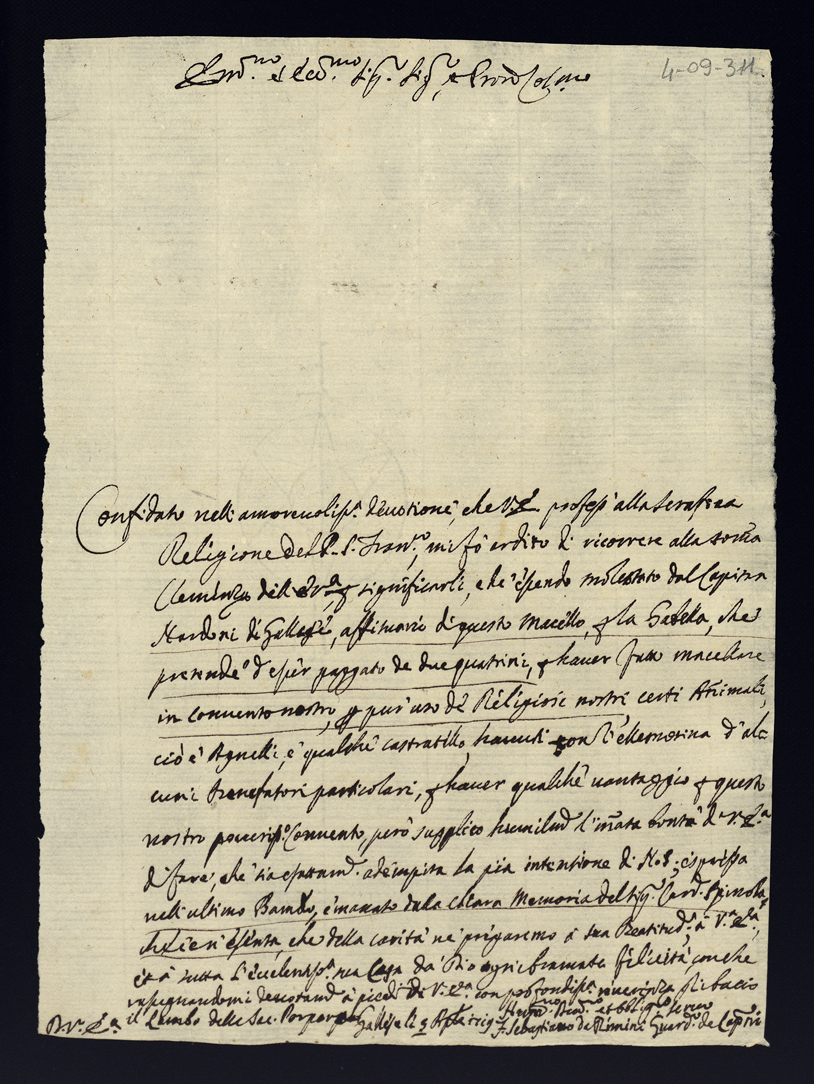 4-09-311.
Em.mo et Ecc.mo Sig.r Sig.r e Pron Col.mo
Confidato nell'amorevoliss.a devotione, che V.E. profess' alla Serafica
Religione del P. S. Fran.co, mi fò ardito di ricorrere alla somma
Clemenza dell' E.V.a, significarli, che essendo molestato dal Capitan
Nardoni di Gallese, affittuario di questo Macello, p la Gabella, che
pretende d'esser paggato de due quatrini, p haver fatto macellare
in Convento nostro, p pur'uso de Religiosi nostri certi Animali,
ciò è Agnelli, e qualche castratello, havuti con l'ellemosina d'al-
cuni Benefatori particolari, p haver qualche vantaggio p questo
nostro poveriss.o Convento, però supplico humilm.te l'innata bontà di V. E.a
di fare, che sia esattam.te adempita la pia intentione di N.S. espressa
nell'ultimo Bando, emanato dalla chiara Memoria del Sig.r Card. Spinola
che della carità ne pregaremo a sua Beatitud.e, a V.a E.a,
et a tutta l'eccelentiss.a sua Casa da Dio ogni bramata felicità, con che
rassegnandomi devotam.te a piedi di V.a E.a con profondiss.a riverenza gli bacio
il Lembo della Sac. Porpora Gallese li 9
D. V.a E.a
Humiliss.mo Dev.mo et obblig.mo servo
F. Sebastiano da Rimini Guard.no de Capp.ni